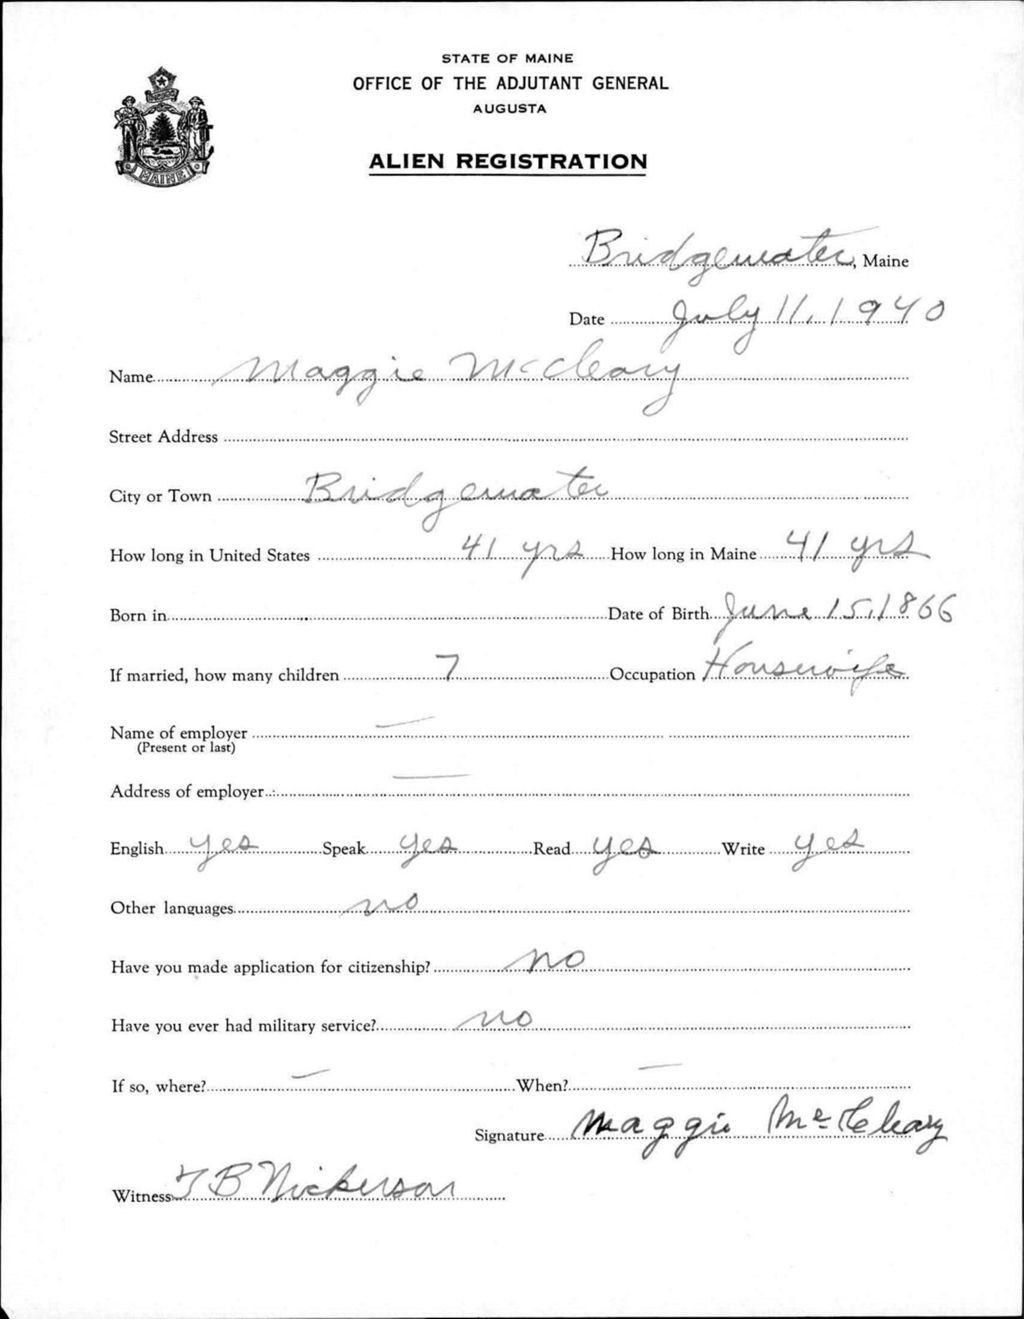 STATE OF MAINE
OFFICE OF THE ADJUTANT GENERAL
AUGUSTA
ALIEN REGISTRATION
MAINE
Bridgewater, Maine
Date July 11, 1940
Name Maggie McCleary
Street Address
City or Town Bridgewater
How long in United States 41 yrs How long in Maine 41 yrs
Born in Date of Birth June 15, 1866
If married, how many children 7 Occupation Housewife
Name of employer —
(Present or last)
Address of employer —
English yes Speak yes Read yes Write yes
Other languages no
Have you made application for citizenship? no
Have you ever had military service? no
If so, where? — When? —
Signature Maggie McCleary
Witness T B Nickerson